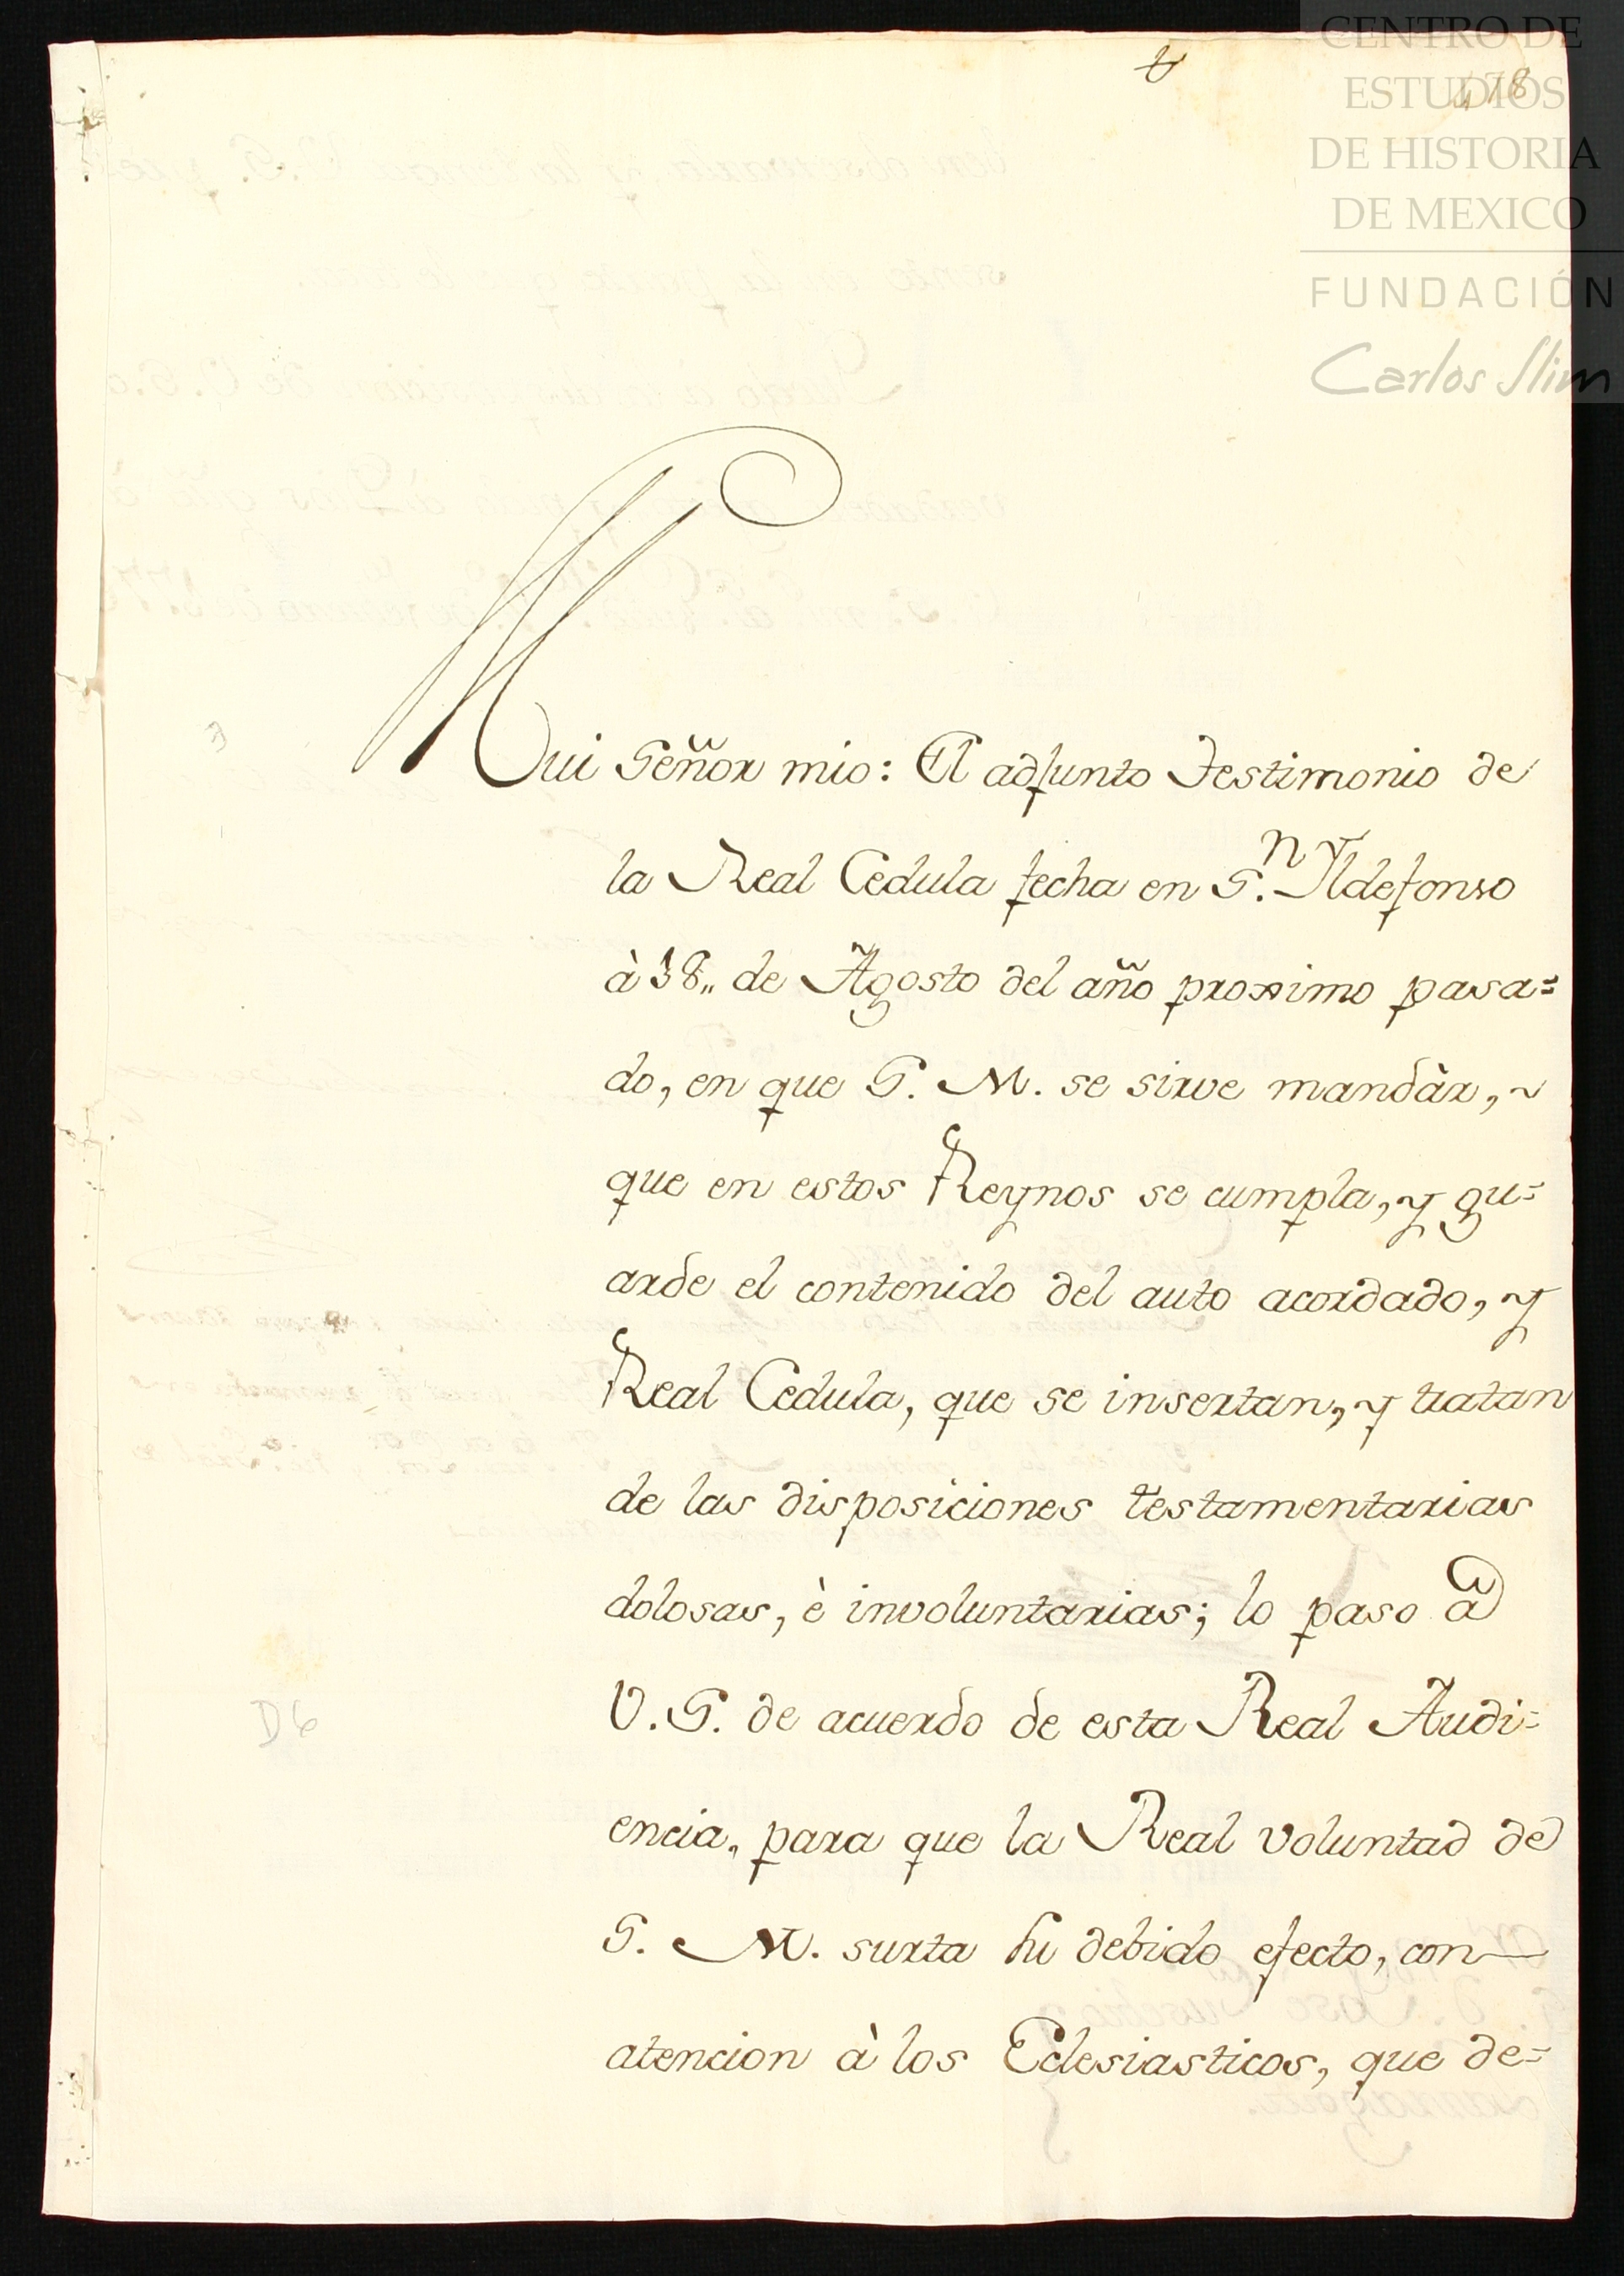 CENTRO DE
ESTUDIOS
DE HISTORIA
DE MEXICO
FUNDACIÓN
Carlos Slim
478
Mui Señor mio: El adjunto Testimonio de
la Real Cedula fecha en S.n Yldefonso
à 18,, de Agosto del año proximo pasa=
do, en que S. M. se sirve mandàr, ~
que en estos Reynos se cumpla, y gu=
arde el contenido del auto acordado, y
Real Cedula, que se insertan, y tratan
de las disposiciones testamentarias
dolosas, è involuntarias; lo paso à
V. S. de acuerdo de esta Real Audi=
encia, para que la Real voluntad de
S. M. surta su debido efecto, con
atencion à los Eclesiasticos, que de=
D6